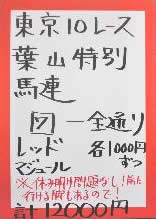 東京10レース
葉山特別
馬連
図 一全通り
レッド 各1000円
マジュール ずつ
※休み明け問題なし!前た
行ける脚もあるので!
計12000円